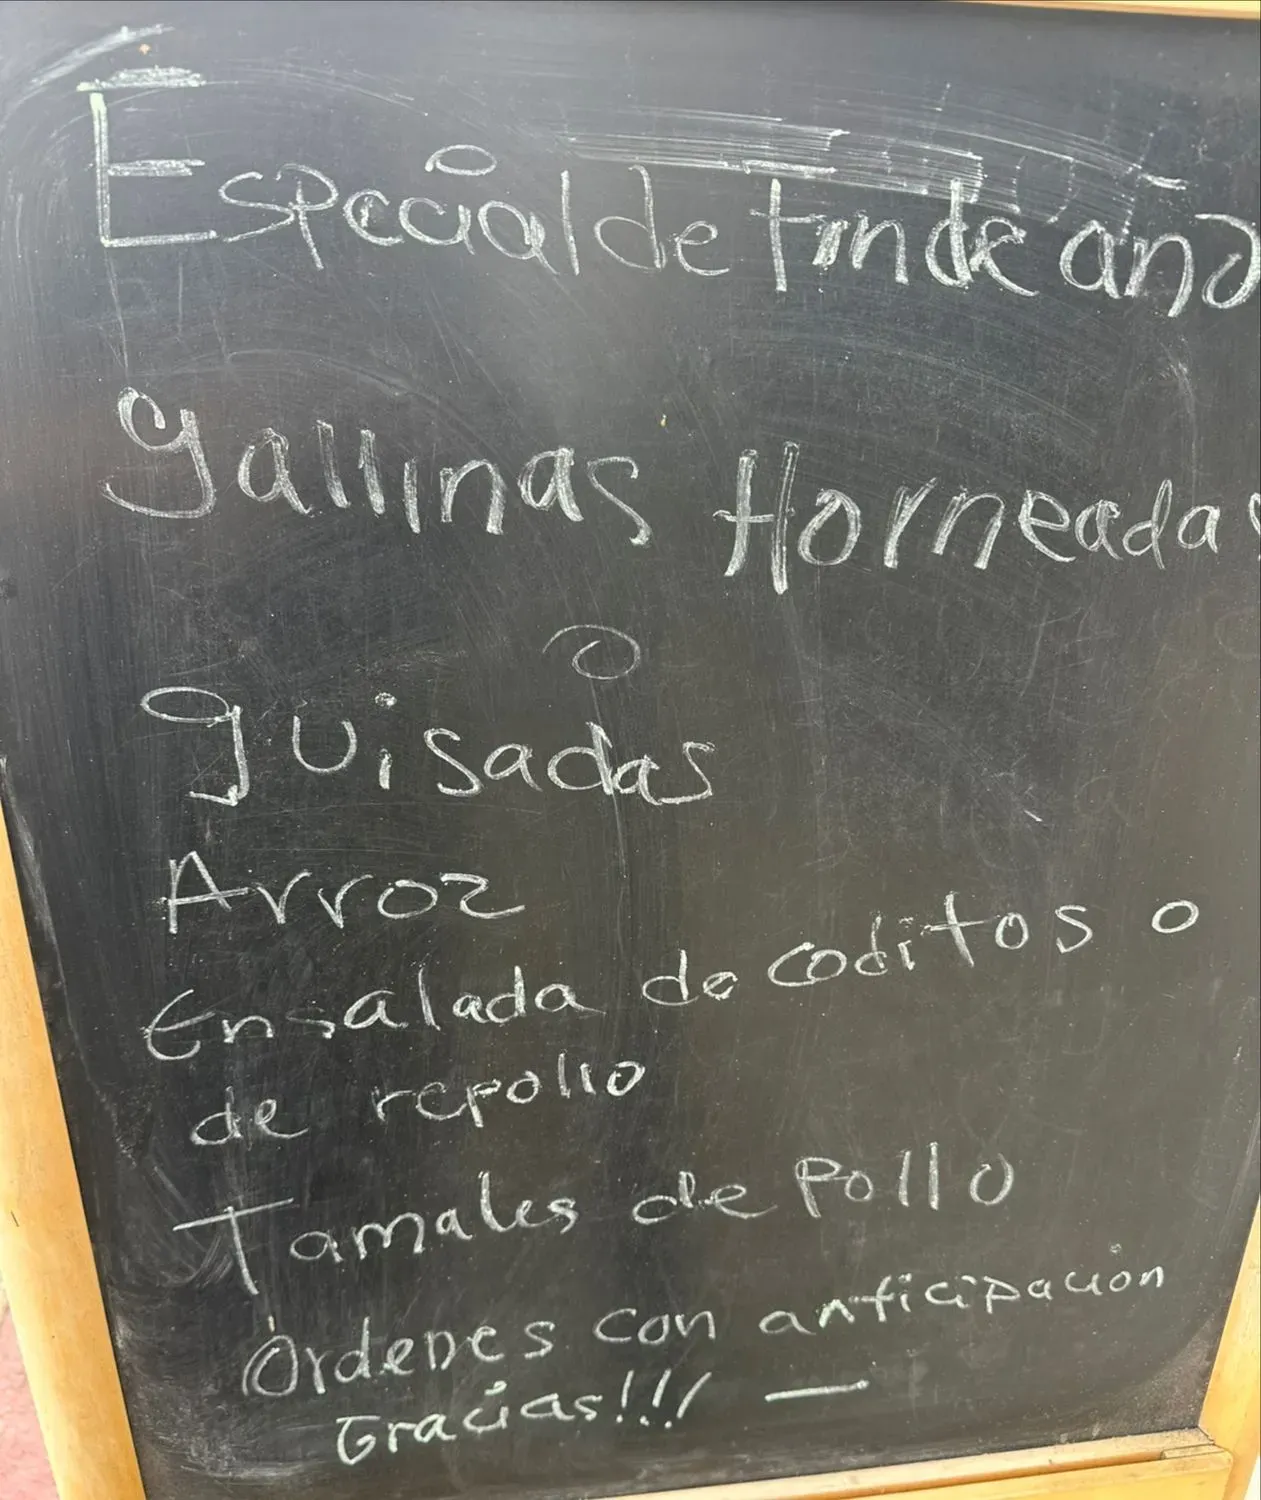 Especial de fin de año
gallinas Horneadas
o
guisadas
Arroz
Ensalada de coditos o
de repollo
Tamales de Pollo
Ordenes con anticipación
Gracias!!!